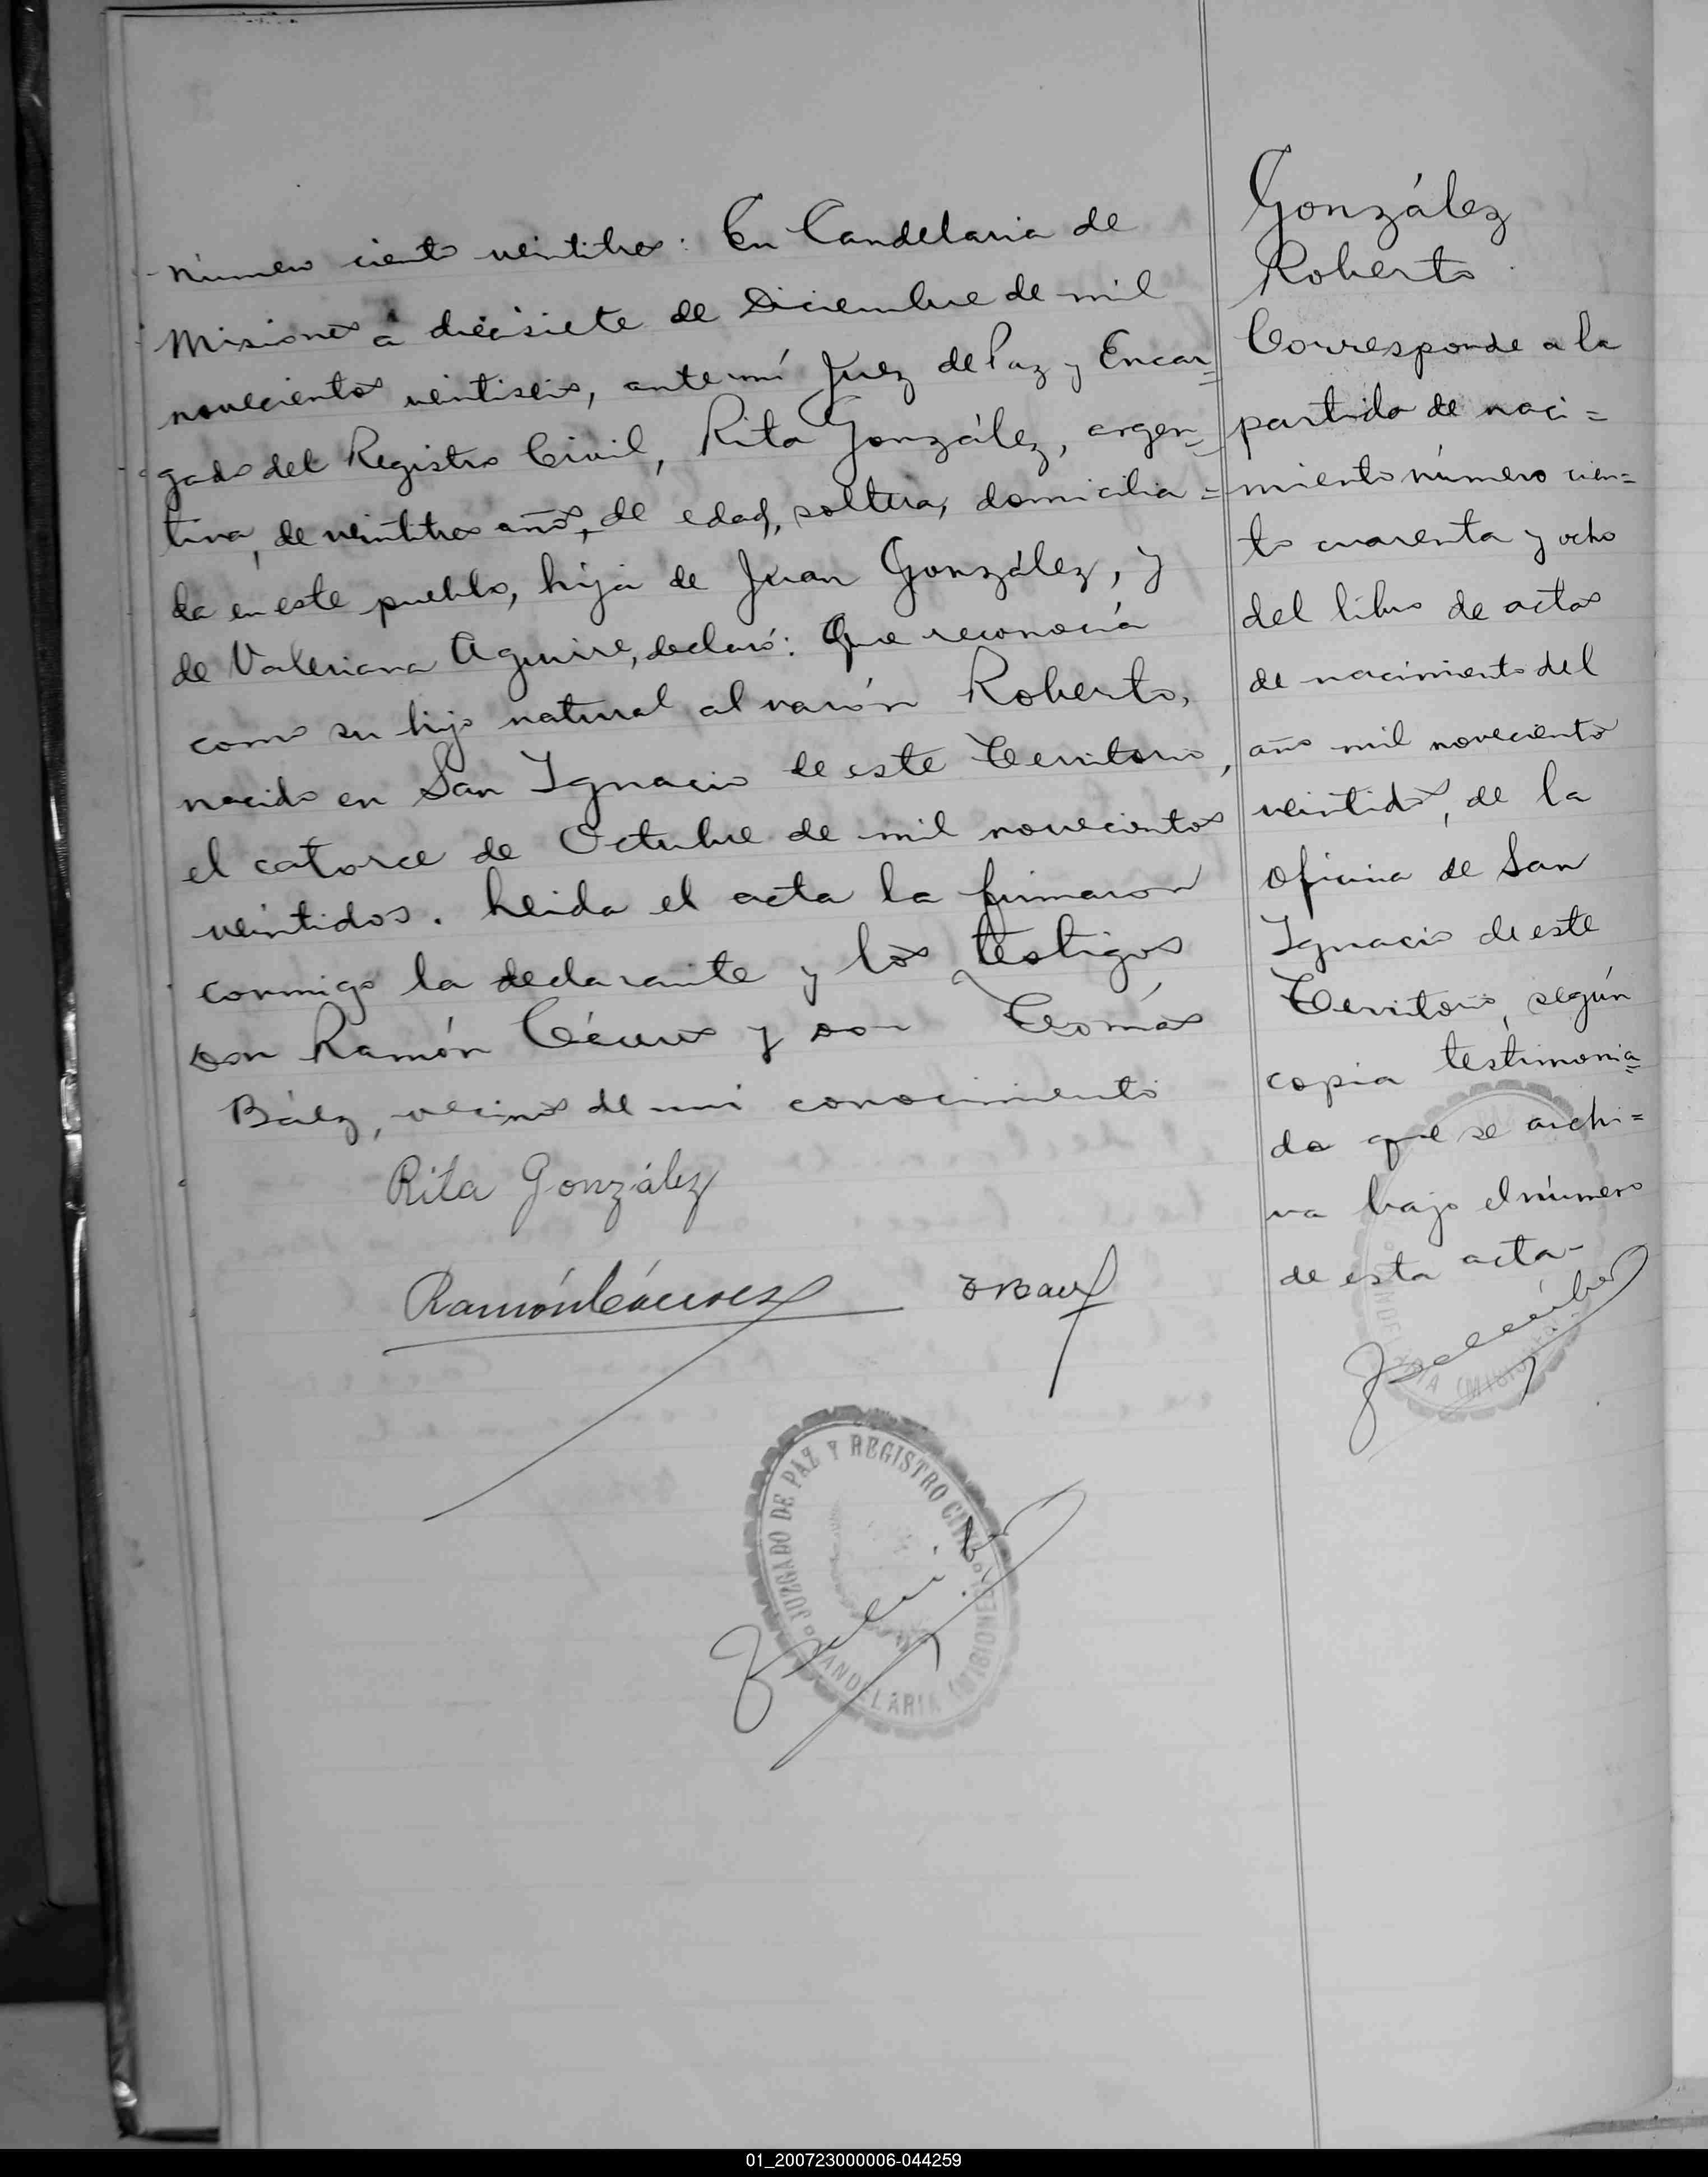 Número ciento veintitres: En Candelaria de
Misiones a diecisiete de Diciembre de mil
novecientos veintiseis, ante mí Juez de Paz y Encar=
gado del Registro Civil, Rita González, argen=
tina, de veintitres años, de edad, soltera, domicilia=
da en este pueblo, hija de Juan González, y
de Valeriana Aguirre, declaró: Que reconocía
como su hijo natural al varón Roberto,
nacido en San Ignacio de este Territorio,
el catorce de Octubre de mil novecientos
veintidos. Leida el acta la firmaron
conmigo la declarante y los testigos
Don Ramón y Don Tomás
Báez, vecinos de mi conocimiento
Rita González
Ramón
T Baez
JUZGADO DE PAZ Y REGISTRO CIVIL
CANDELARIA (MISIONES)
González
Roberto
Corresponde a la
partida de naci=
miento número cien=
to cuarenta y ocho
del libro de actas
de nacimiento del
año mil novecientos
veintidos, de la
Oficina de San
Ignacio de este
Territorio, según
copia testimonia=
da que se archi=
va bajo el número
de esta acta-
01_200723000006-044259